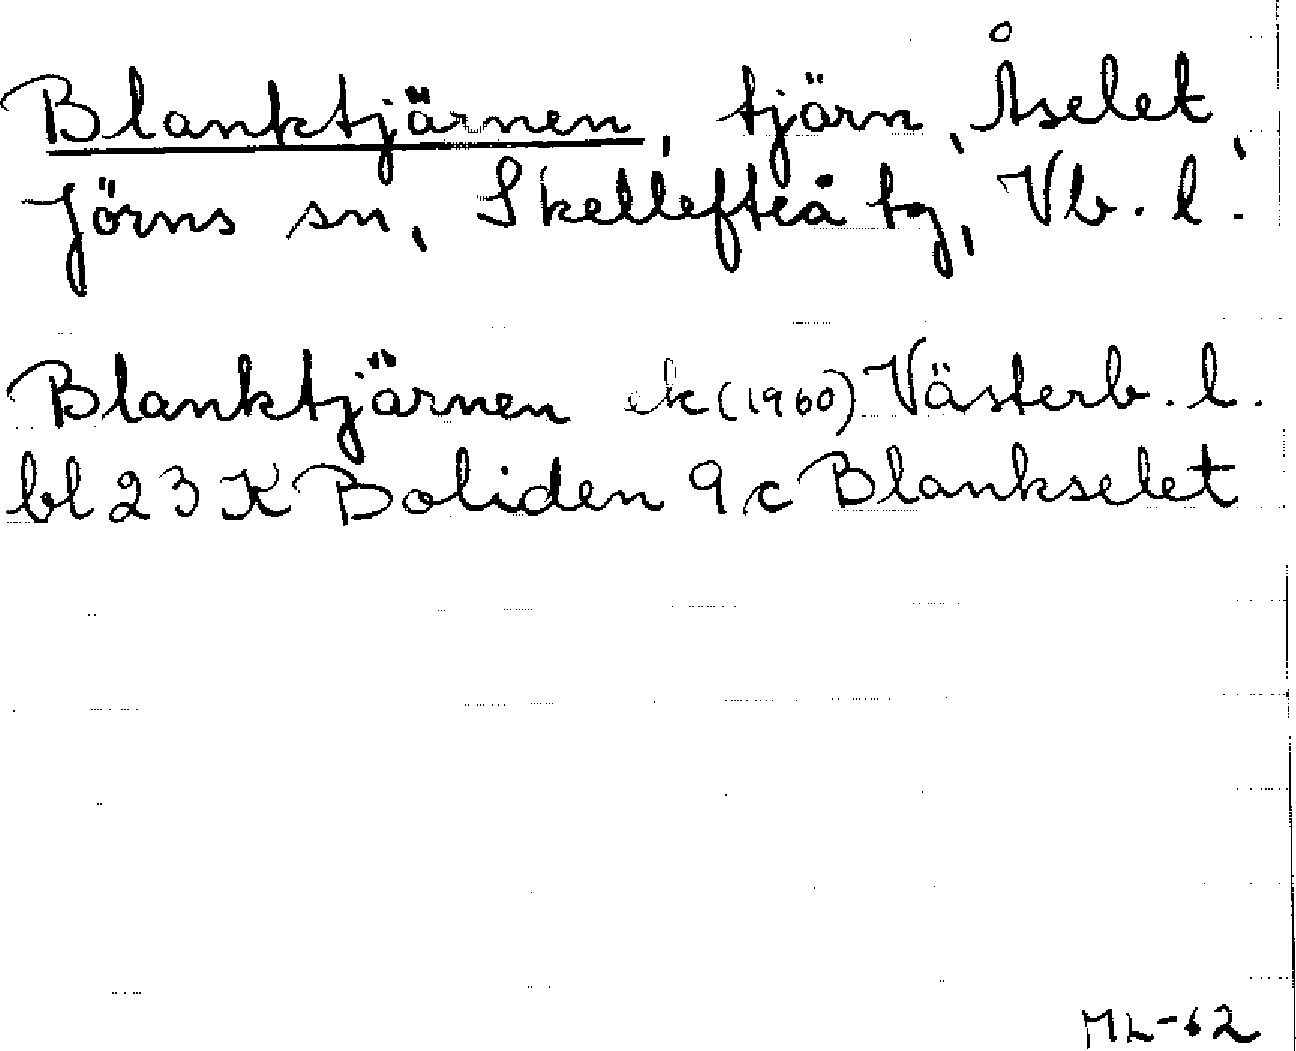 Blanktjärnen, tjärn, Åselet,
Jörns sn, Skellefteå tg, Vb. l.
Blanktjärnen ek (1960) Västerb. l.
bl 23 K Boliden 9 c Blankselet
ML-62